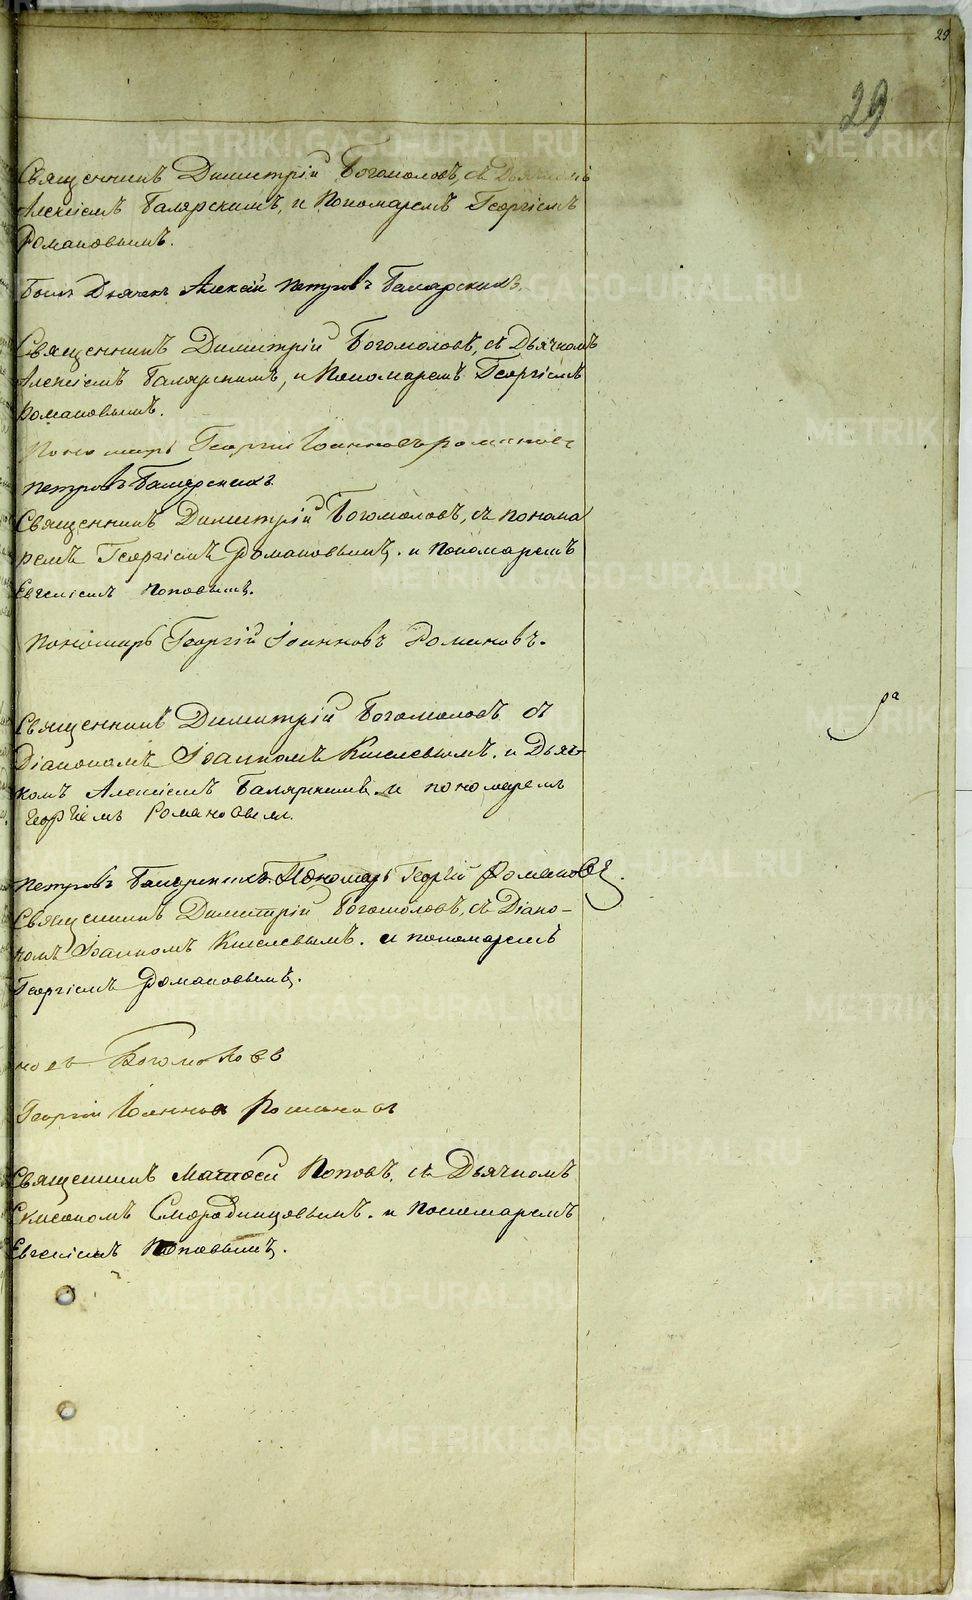 29
29
Священникъ Димитрій Богомоловъ, съ Дьячкомъ
Алексіемъ Балярскимъ, и Пономаремъ Георгіемъ
Романовымъ.
Дьячек Алексій Петровъ Балярскихъ.
Священникъ Димитрій Богомоловъ, съ Дьячкомъ
Алексіемъ Балярскимъ, и Пономаремъ Георгіемъ
Романовымъ.
Пономарь Георгій Іоанновъ Романовъ
Петровъ Балярскихъ
Священникъ Димитрій Богомоловъ, съ понома
ремъ Георгіемъ Романовымъ. и Пономаремъ
Евгеніемъ Поповымъ.
Пономарь Георгій Іоанновъ Романовъ.
Священникъ Димитрій Богомоловъ съ
ра
Діакономъ Іоанномъ Киселевымъ. и Дьяч-
комъ Алексіемъ Балярскимъ и пономаремъ
Георгіемъ Романовым.
Петровъ Балярскихъ. Пономарь Георгій Романовъ.
Священникъ Димитрій Богомоловъ, съ Діако-
номъ Іоанномъ Киселевымъ. и пономаремъ
Георгіемъ Романовымъ.
Богомоловъ
Георгій Іоанновъ Романовъ
Священникъ Матѳей Поповъ, съ Дьячкомъ
Смородинцовымъ. и Пономаремъ
Евгеніемъ Поповымъ.
METRIKI.GASO-URAL.RU